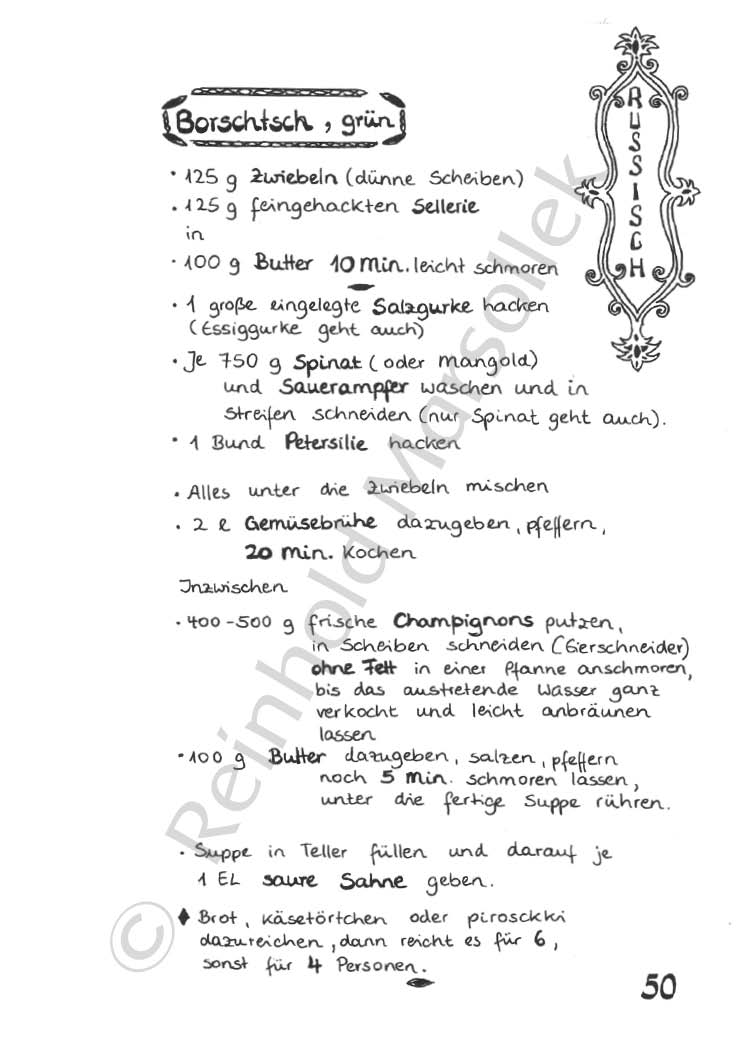 RUSSISCH
Borschtsch, grün
· 125 g Zwiebeln (dünne Scheiben)
· 125 g feingehackten Sellerie
in
· 100 g Butter 10 Min. leicht schmoren
· 1 große eingelegte Salzgurke hacken
(Essiggurke geht auch)
· Je 750 g Spinat (oder Mangold)
und Sauerampfer waschen und in
Streifen schneiden (nur Spinat geht auch).
· 1 Bund Petersilie hacken
· Alles unter die Zwiebeln mischen
· 2 l Gemüsebrühe dazugeben, pfeffern,
20 min. Kochen
Inzwischen
· 400-500 g frische Champignons putzen,
in Scheiben schneiden (Eierschneider)
ohne Fett in einer Pfanne anschmoren,
bis das austretende Wasser ganz
verkocht und leicht anbräunen
lassen
· 100 g Butter dazugeben, salzen, pfeffern
noch 5 min. schmoren lassen,
unter die fertige Suppe rühren.
· Suppe in Teller füllen und darauf je
1 EL saure Sahne geben.
♦ Brot, Käsetörtchen oder Piroschki
dazureichen, dann reicht es für 6,
sonst für 4 Personen.
50
© Reinhold Marsollek